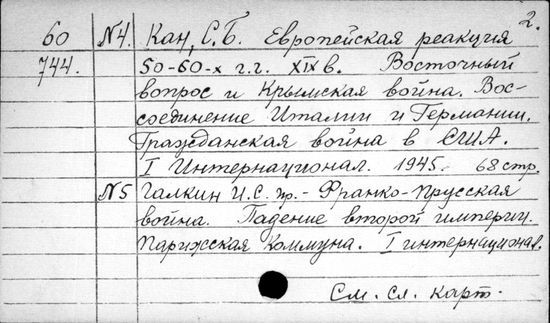 2.
60 №4. Кан, С.Б. Европейская реакция
744. 50-60-х г.г. XIX в. Восточный
вопрос и Крымская война. Вос-
соединение Италии и Германии.
Гражданская война в США.
I Интернационал. 1945. 68 стр.
№5 Галкин И.С. пр. - Франко-Прусская
война. Падение второй империи.
Парижская Коммуна. I интернационал.
См. сл. карт.